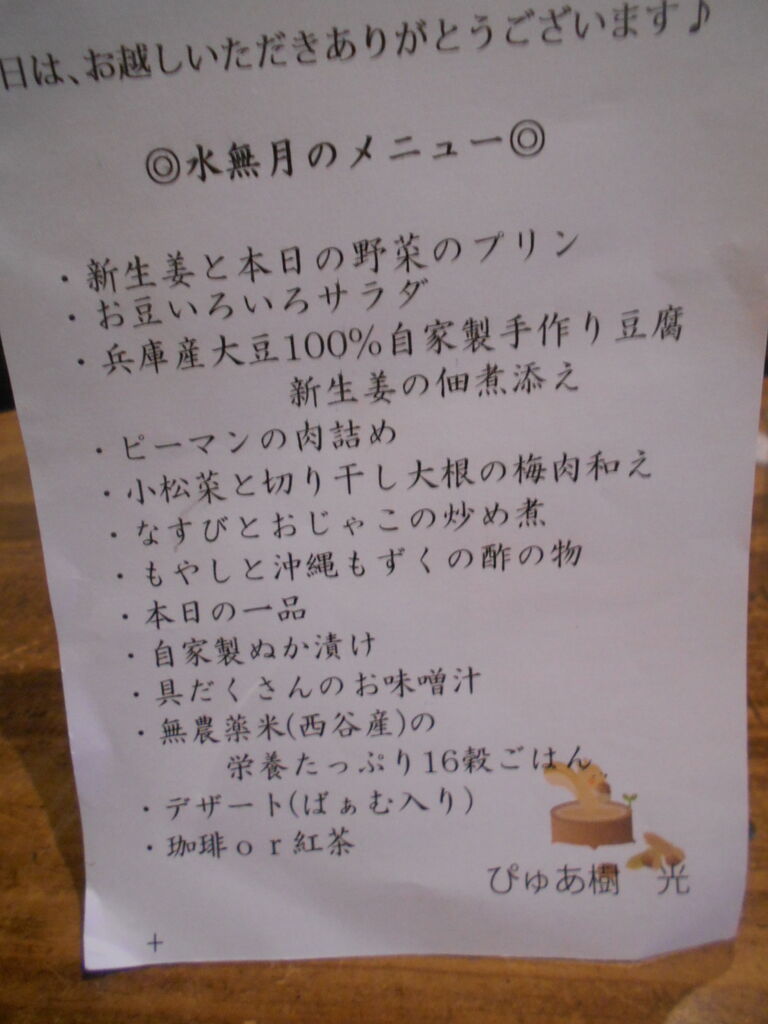 日は、お越しいただきありがとうございます♪
◎水無月のメニュー◎
・新生姜と本日の野菜のプリン
・お豆いろいろサラダ
・兵庫産大豆100%自家製手作り豆腐
新生姜の佃煮添え
・ピーマンの肉詰め
・小松菜と切り干し大根の梅肉和え
・なすびとおじゃこの炒め煮
・もやしと沖縄もずくの酢の物
・本日の一品
・自家製ぬか漬け
・具だくさんのお味噌汁
・無農薬米(西谷産)の
栄養たっぷり16穀ごはん
・デザート(ばぁむ入り)
・珈琲or紅茶
ぴゅあ樹　光
+